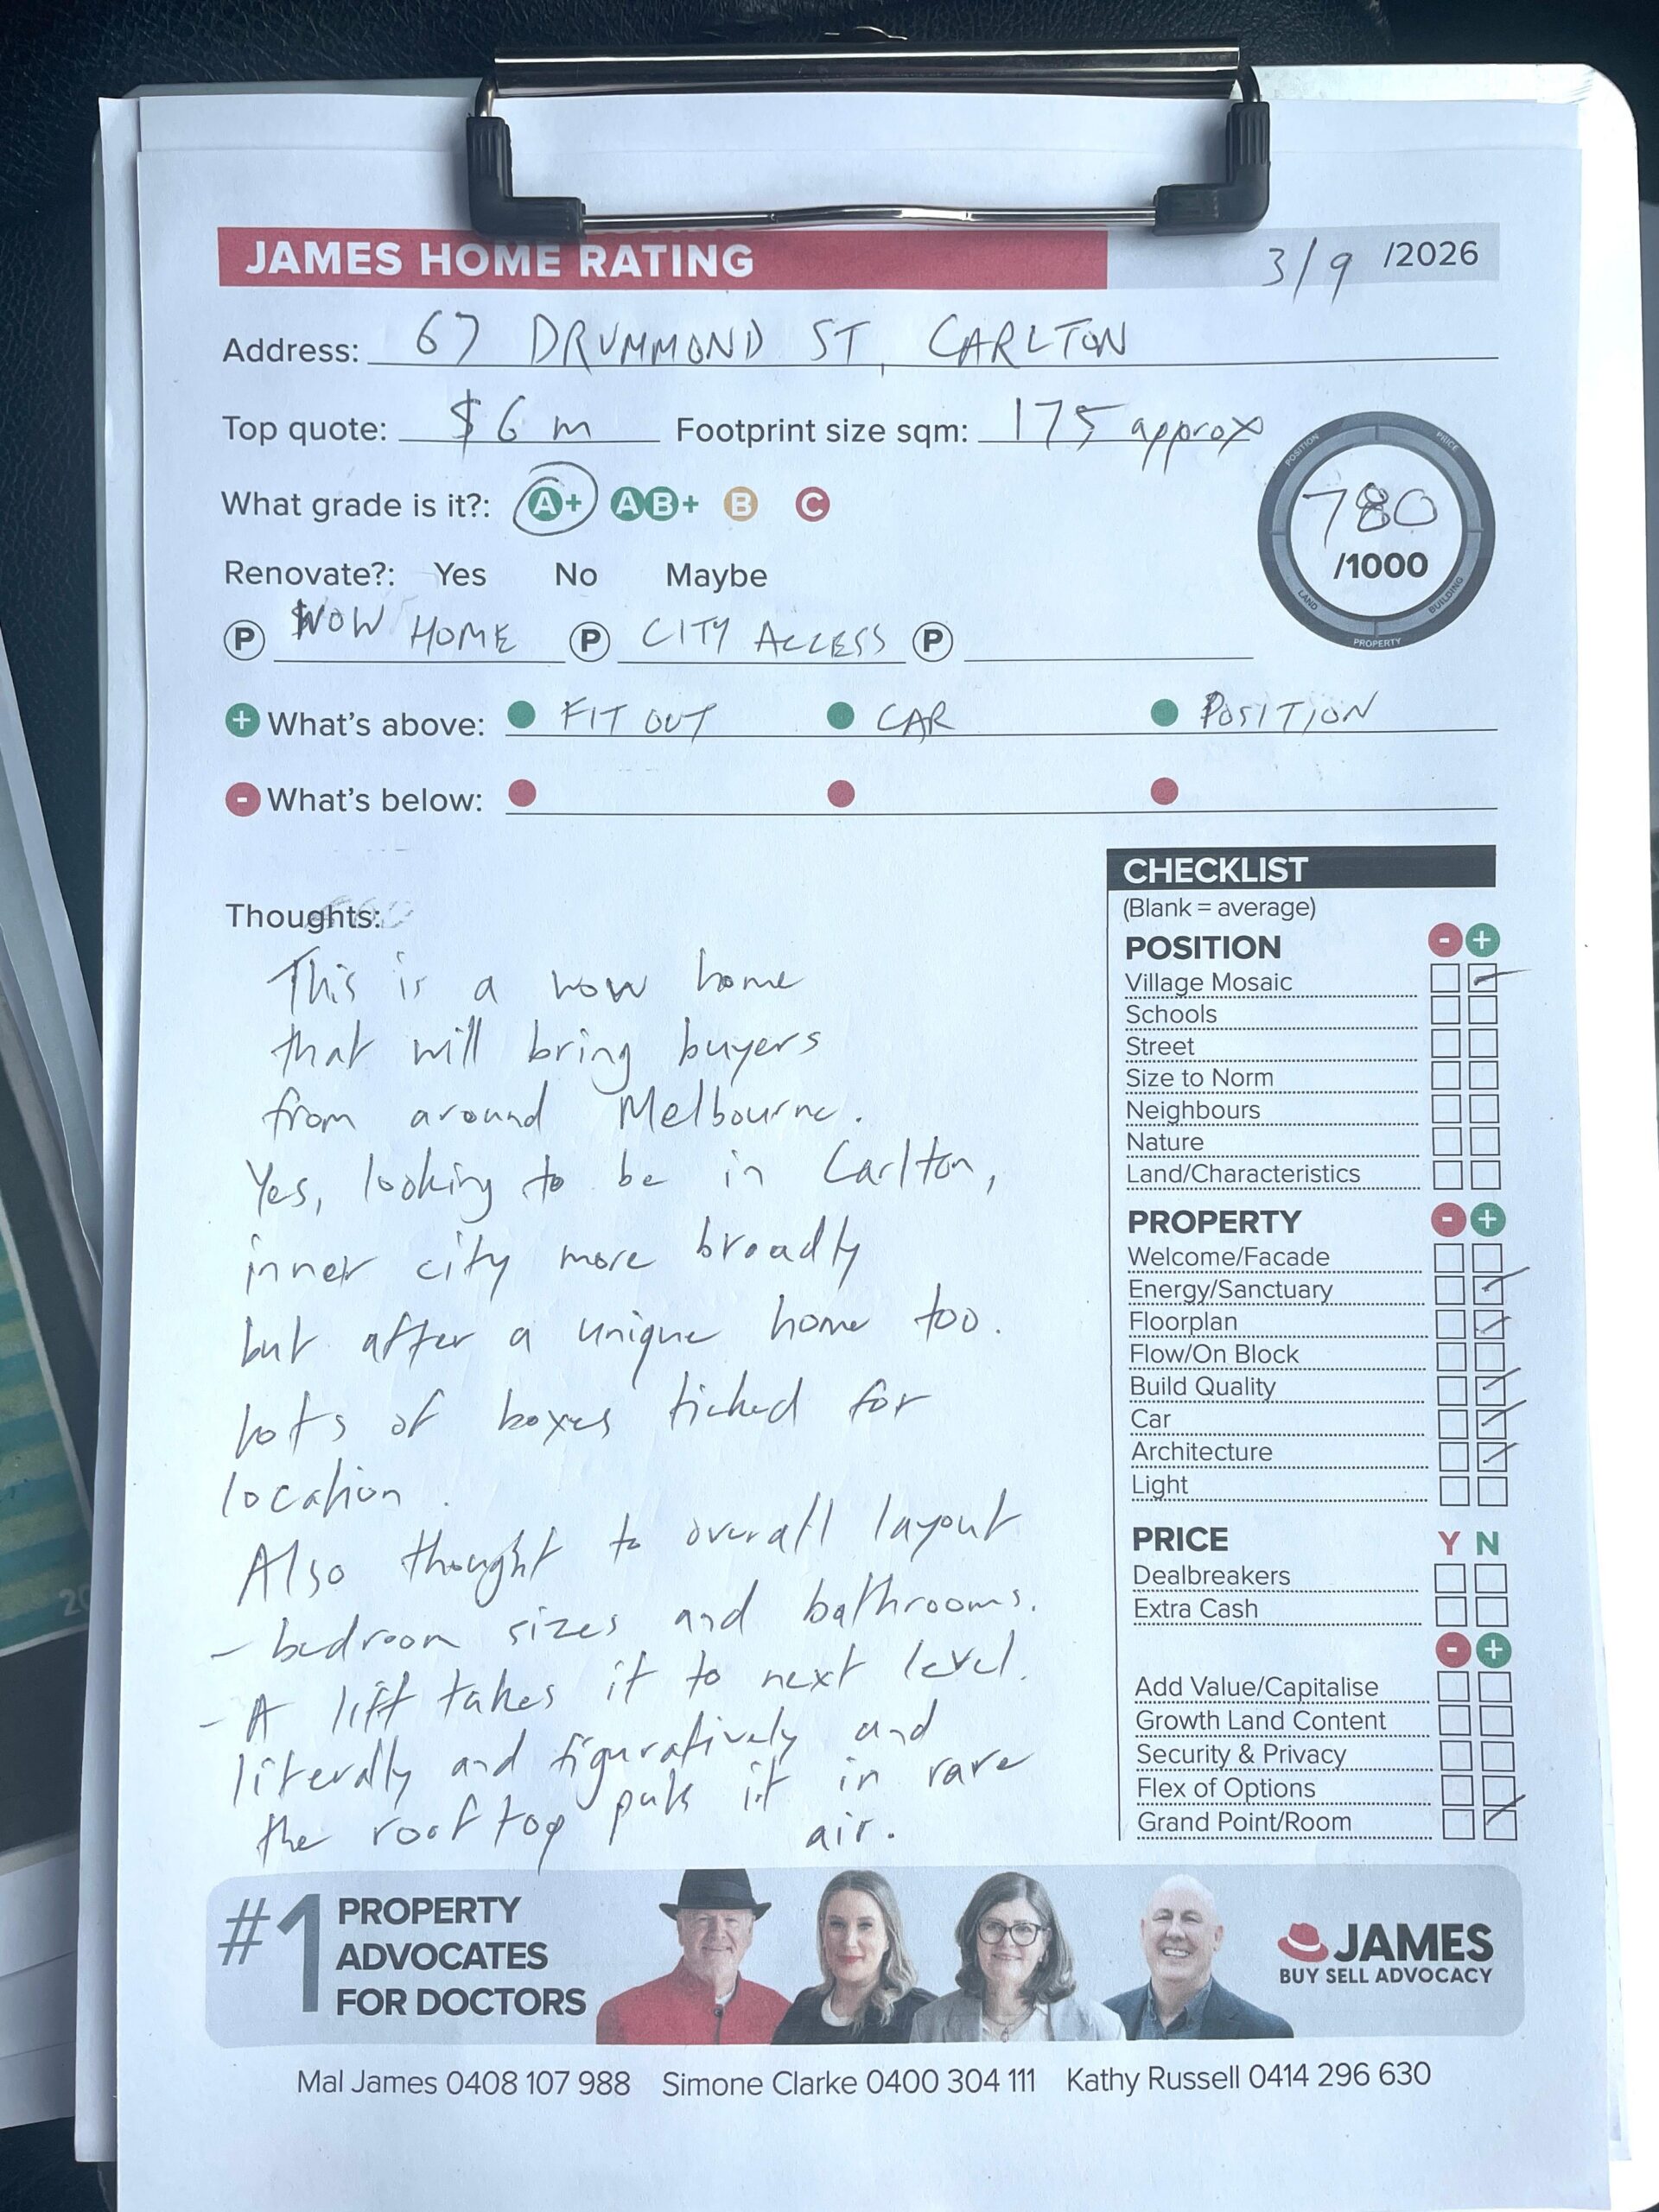 JAMES HOME RATING 3/9 /2026
Address: 67 DRUMMOND ST, CARLTON
Top quote: $6m Footprint size sqm: 175 approx
What grade is it?: A+ AB+ B C
POSITION PRICE
780
/1000
LAND BUILDING
PROPERTY
Renovate?: Yes No Maybe
P WOW HOME P CITY ACCESS P
+ What's above: FIT OUT CAR POSITION
- What's below:
Thoughts:
This is a wow home
that will bring buyers
from around Melbourne.
Yes, looking to be in Carlton,
inner city more broadly
but after a unique home too.
Lots of boxes ticked for
location.
Also thought to overall layout
- bedroom sizes and bathrooms.
- A lift takes it to next level.
literally and figuratively and
the rooftop puts it in rare
air.
CHECKLIST
(Blank = average)
POSITION - +
Village Mosaic
Schools
Street
Size to Norm
Neighbours
Nature
Land/Characteristics
PROPERTY - +
Welcome/Facade
Energy/Sanctuary
Floorplan
Flow/On Block
Build Quality
Car
Architecture
Light
PRICE Y N
Dealbreakers
Extra Cash
- +
Add Value/Capitalise
Growth Land Content
Security & Privacy
Flex of Options
Grand Point/Room
#1 PROPERTY
ADVOCATES
FOR DOCTORS
JAMES
BUY SELL ADVOCACY
Mal James 0408 107 988 Simone Clarke 0400 304 111 Kathy Russell 0414 296 630